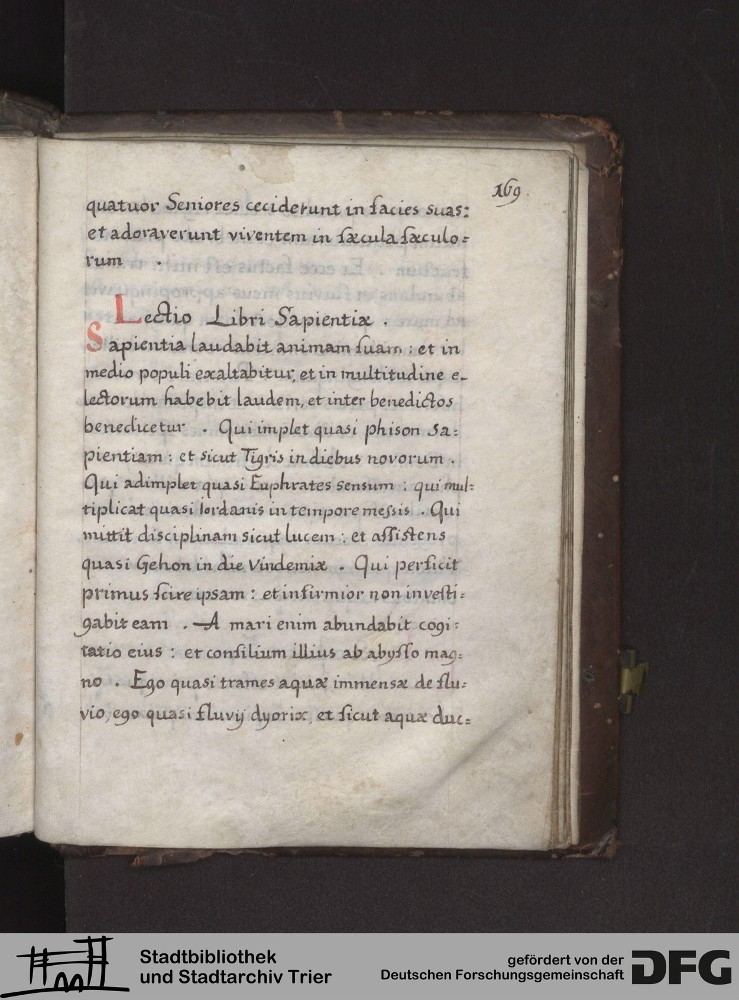 169
quatuor Seniores ceciderunt in facies suas:
et adoraverunt viventem in sæcula sæculo=
rum .
Lectio Libri Sapientiæ .
Sapientia laudabit animam suam : et in
medio populi exaltabitur, et in multitudine e-
lectorum habebit laudem, et inter benedictos
benedicetur . Qui implet quasi phison sa=
pientiam : et sicut Tigris in diebus novorum .
Qui adimplet quasi Euphrates sensum : qui mul=
tiplicat quasi Iordanis in tempore messis . Qui
mittit disciplinam sicut lucem : et assistens
quasi Gehon in die Vindemiæ . Qui perficit
primus scire ipsam : et infirmior non investi=
gabit eam . A mari enim abundabit cogi=
tatio eius : et consilium illius ab abysso mag=
no . Ego quasi trames aquæ immensæ de flu=
vio, ego quasi fluvij dyorix, et sicut aquæ duc=
Stadtbibliothek
und Stadtarchiv Trier
gefördert von der
Deutschen Forschungsgemeinschaft
DFG